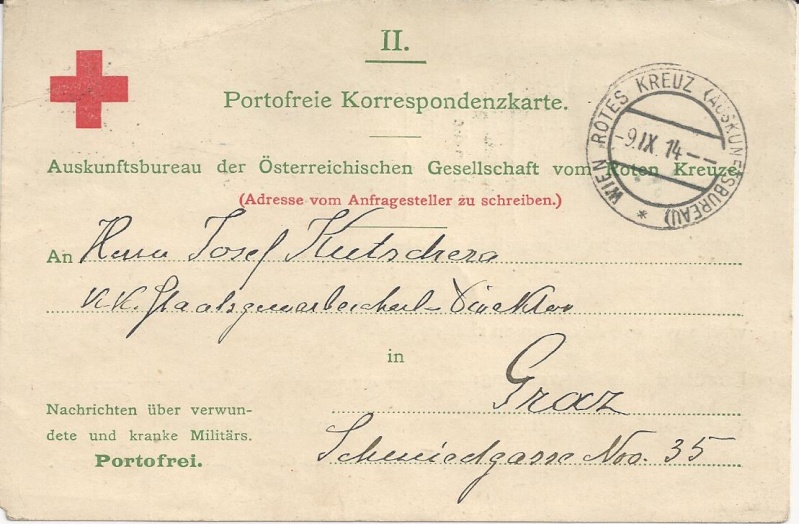 II.
Portofreie Korrespondenzkarte.
WIEN ROTES KREUZ (AUSKUNFTSBUREAU) *
-9.IX.14--
Auskunftsbureau der Österreichischen Gesellschaft vom Roten Kreuze.
(Adresse vom Anfragesteller zu schreiben.)
An Herrn Josef Kutschera
K.K. Staatsgewerbeschul-Direktor
in
Graz
Schmiedgasse Nro. 35
Nachrichten über verwun-
dete und kranke Militärs.
Portofrei.